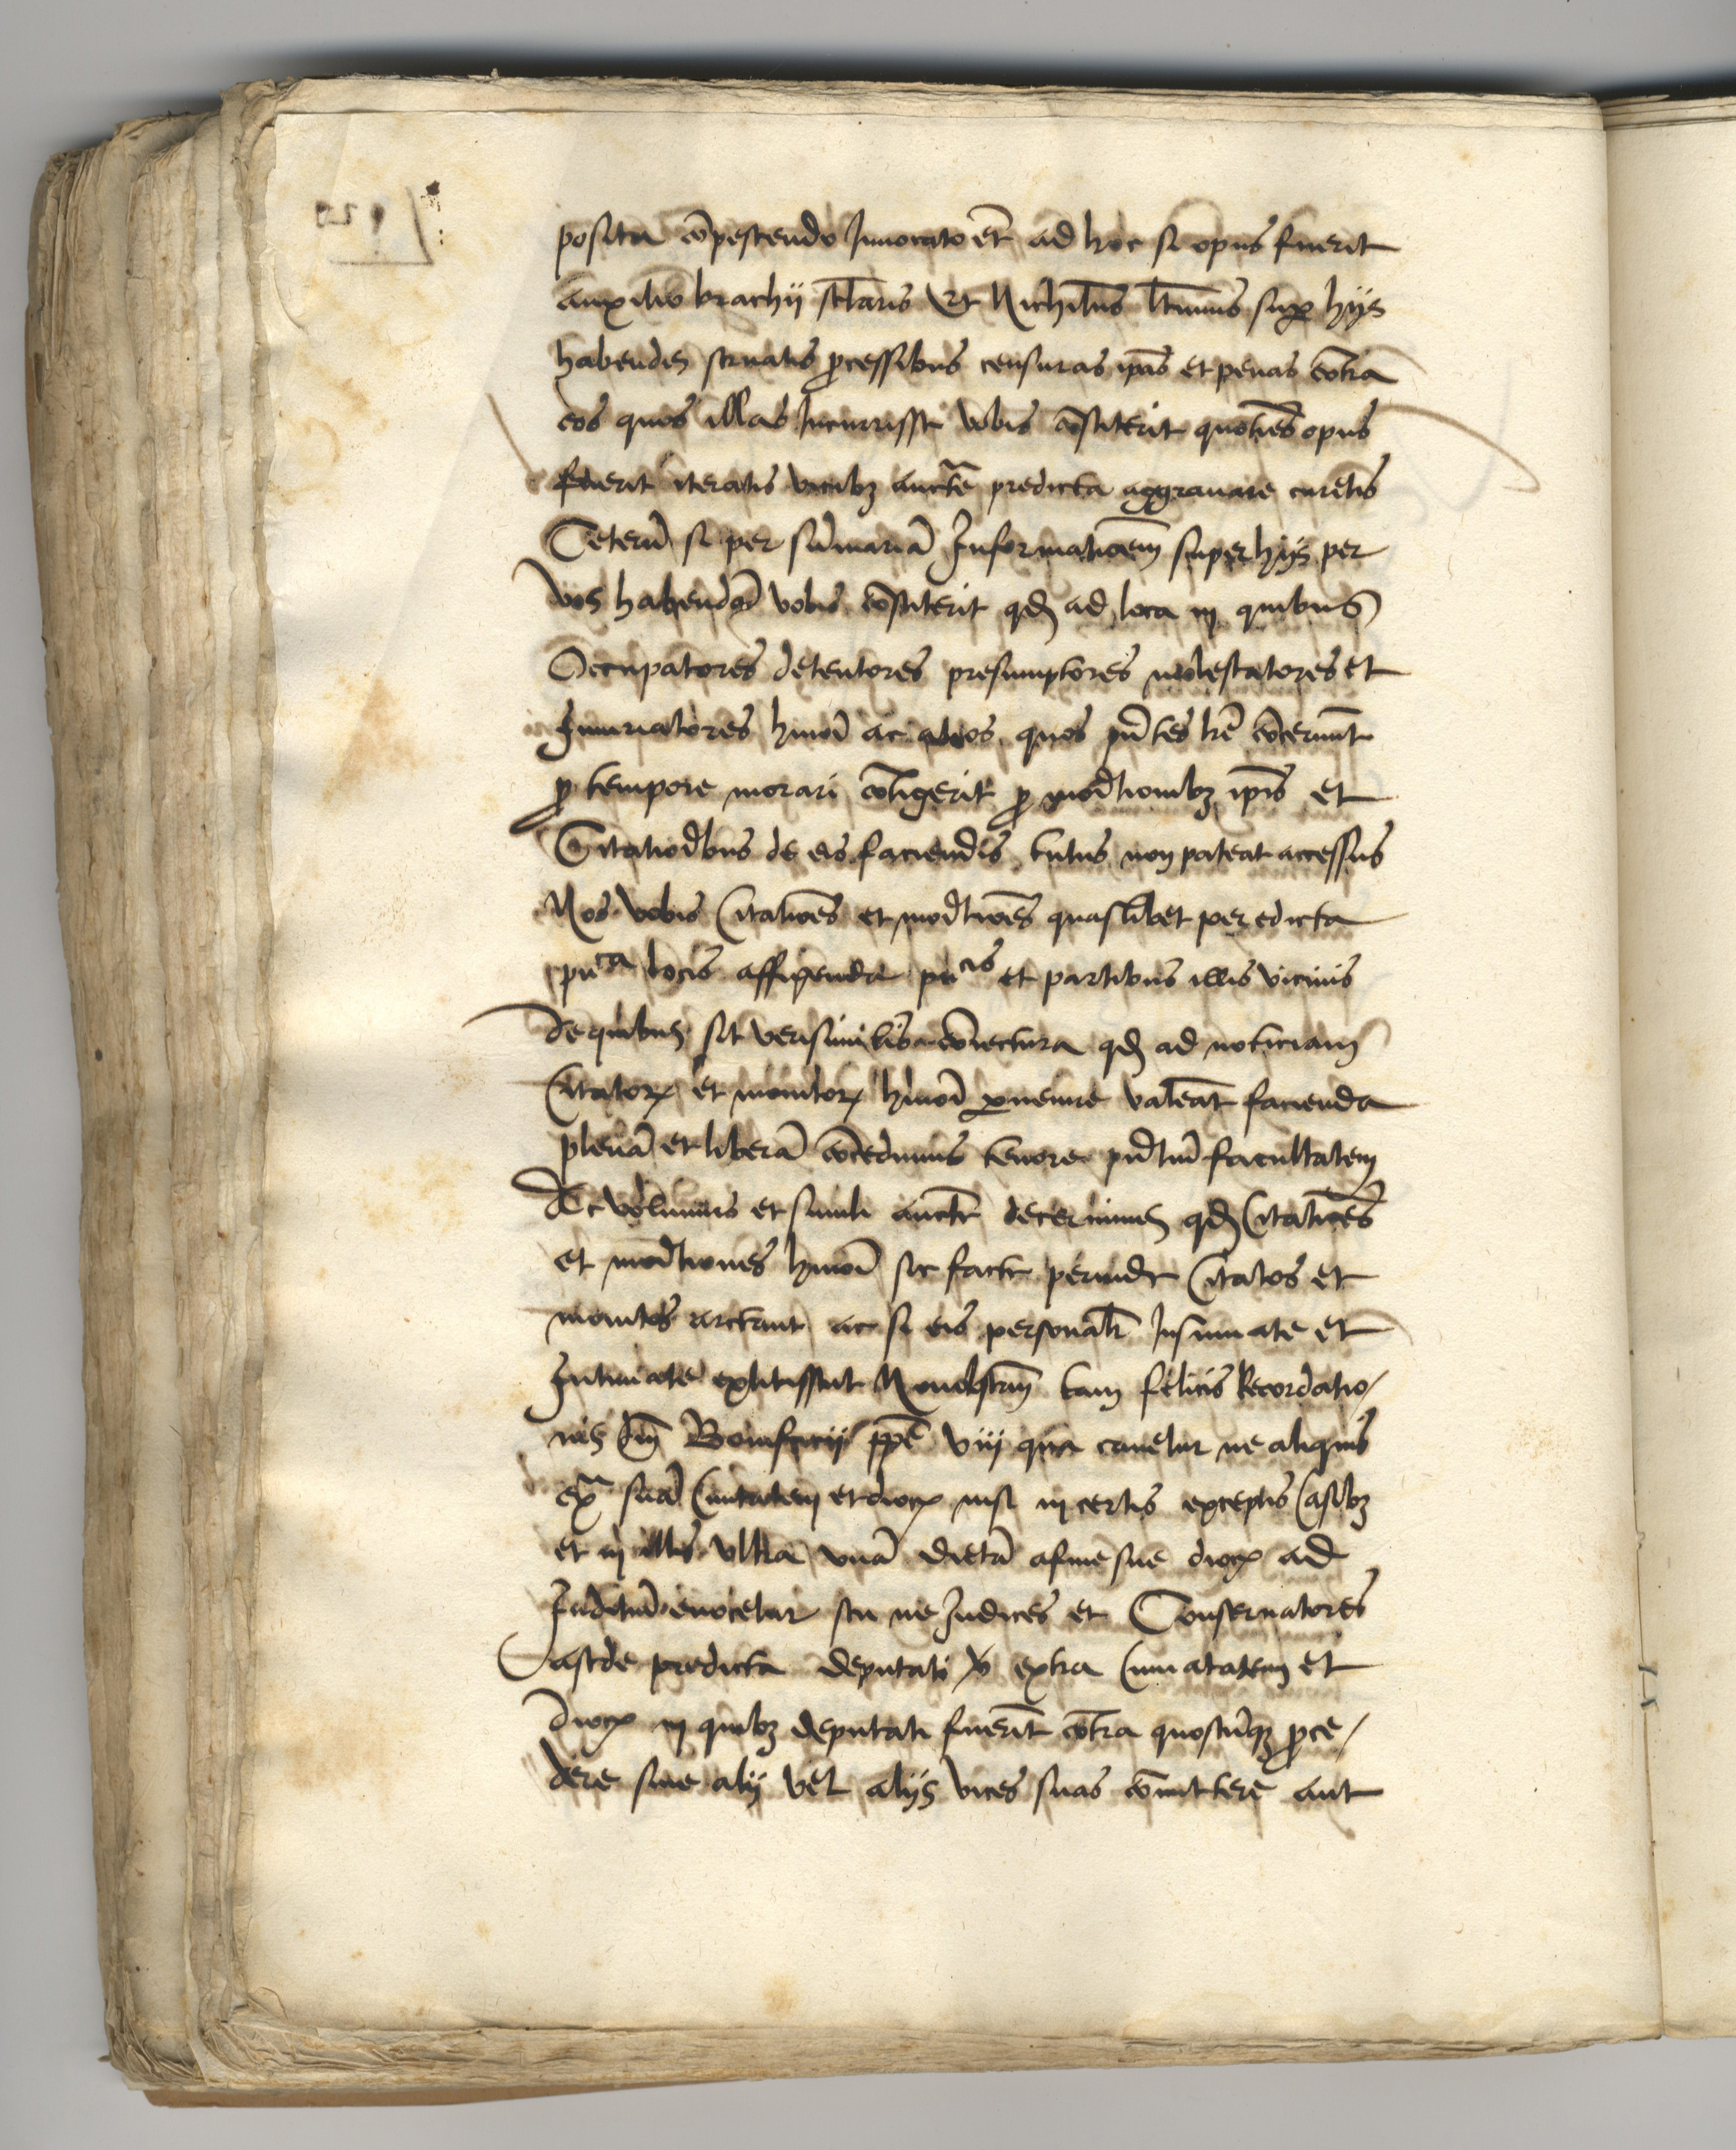 posita cōpescendo Inuocato et̄ ad hoc si opus fuerit
auxilio brachij sc̄laris Et Nichilūs l̄timis sup hijs
habendis seruatis ꝓcessibus censuras ip̄as et penas cōtra
eos quos illas Incurrisse vobis cōstiterit quotiēs opus
fuerit iteratis vicibꝫ auctē predicta aggrauare curetis
Ceterū si per sūmariā Informatiōem super hijs per
vos habendā vobis cōstiterit qđ ad loca in quibus
Occupatores detentores presumptores molestatores et
Iniuriatores hmōi ac alios quos pn̄tes l̄re cōcernūt
ꝓ tempore morari cōtigerit ꝓ moītionibꝫ ip̄is et
Citatioībus de eis faciendis tutus non pateat accessus
Nos vobis Citatiōes et moītiōes quaslibet per edicta
puca locis affigenda pucis et partibus illis vicinis
de quibus sit verisimilis cōiectura qđ ad noticiam
Citatorꝝ et monitorꝝ hmōi ꝑuenire valeāt facienda
plenā et liberā cōcedimus tenore pn̄tiū facultatem
Ac volumus et simili auctē decernimus qđ Citatiōes
et moītiones hmōi sic facte perinde Citatos et
monitos arctent ac si eis personalr̄ Insinuate et
Intimate extitissent Nonobstan̄ tam felicis Recordatio/
nis din̄ Bonifacij pp̄e viij qua cauetur ne aliquis
ex̄ suā Ciuitatem et dioc̄ nisi in certis exceptis Casibꝫ
et in illis vltra vnā dietā a fine sue dioc̄ ad
Iuditiū euocetur seu ne Iudices et Conseruatores
a sede predicta deputati extra Ciuitatem et
dioc̄ in quibꝫ deputati fuerīt cōtra quoscūqꝫ ꝓce/
dere siue alij vel alijs vices suas cōmittere aut